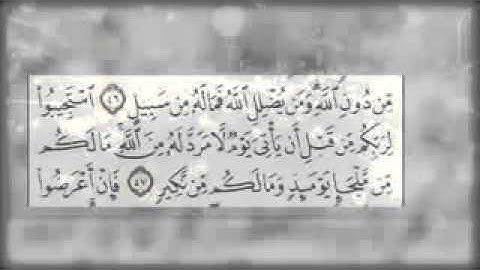 مِّن دُونِ ٱللَّهِ وَمَن يُضْلِلِ ٱللَّهُ فَمَا لَهُۥ مِن سَبِيلٍ ٤٦ ٱسْتَجِيبُوا۟
لِرَبِّكُم مِّن قَبْلِ أَن يَأْتِىَ يَوْمٌ لَّا مَرَدَّ لَهُۥ مِنَ ٱللَّهِ مَا لَكُم
مِّن مَّلْجَإٍ يَوْمَئِذٍ وَمَا لَكُم مِّن نَّكِيرٍ ٤٧ فَإِنْ أَعْرَضُوا۟